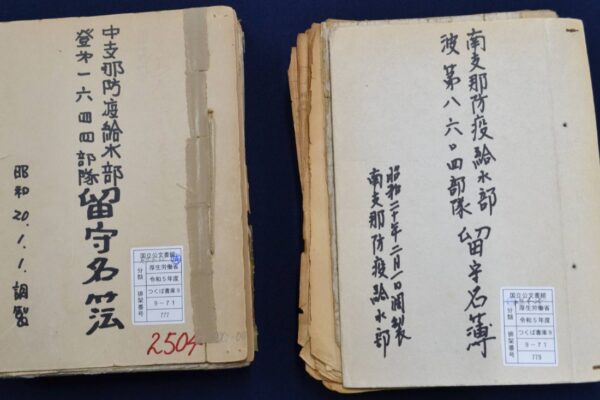 中支那防疫給水部
登才一六四四部隊 留守名簿
昭和20.1.1.調製
国立公文書館
分類
厚生労働省
令和5年度
つくば書庫9
排架番号
9-71
777
2504
南支那防疫給水部
波第八六〇四部隊 留守名簿
昭和二十年二月一日調製
南支那防疫給水部
国立公文書館
分類
厚生労働省
令和5年度
つくば書庫9
排架番号
9-71
779